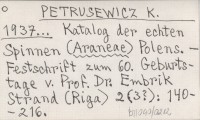 PETRUSEWICZ K.
1937... Katalog der echten
Spinnen (Araneae) Polens. -
Festschrift zum 60. Geburts-
tage v. Prof. Dr. Embrik
Strand (Riga) 2(3?): 140-
-216.